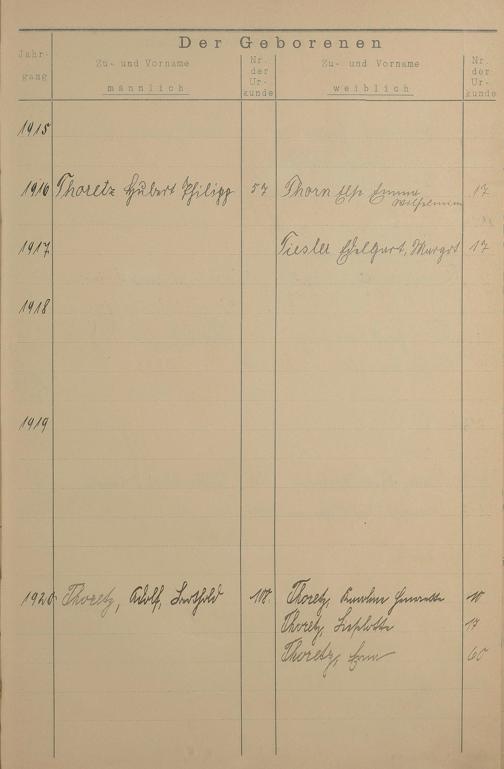 Der Geborenen
Jahr-
gang
Zu- und Vorname
männlich
Nr.
der
Ur-
kunde
Zu- und Vorname
weiblich
Nr.
der
Ur-
kunde
1915
1916 Thoretz Hubert Philipp 57 Thorn Else Emma 17
Wilhelmine
1917 Tiesler Edelgart, Margot 17
1918
1919
1920 Thoretz, Adolf, Berthold 107. Thoretz, Henriette 10
Thoretz, Liselotte 17
Thoretz, Erna 60